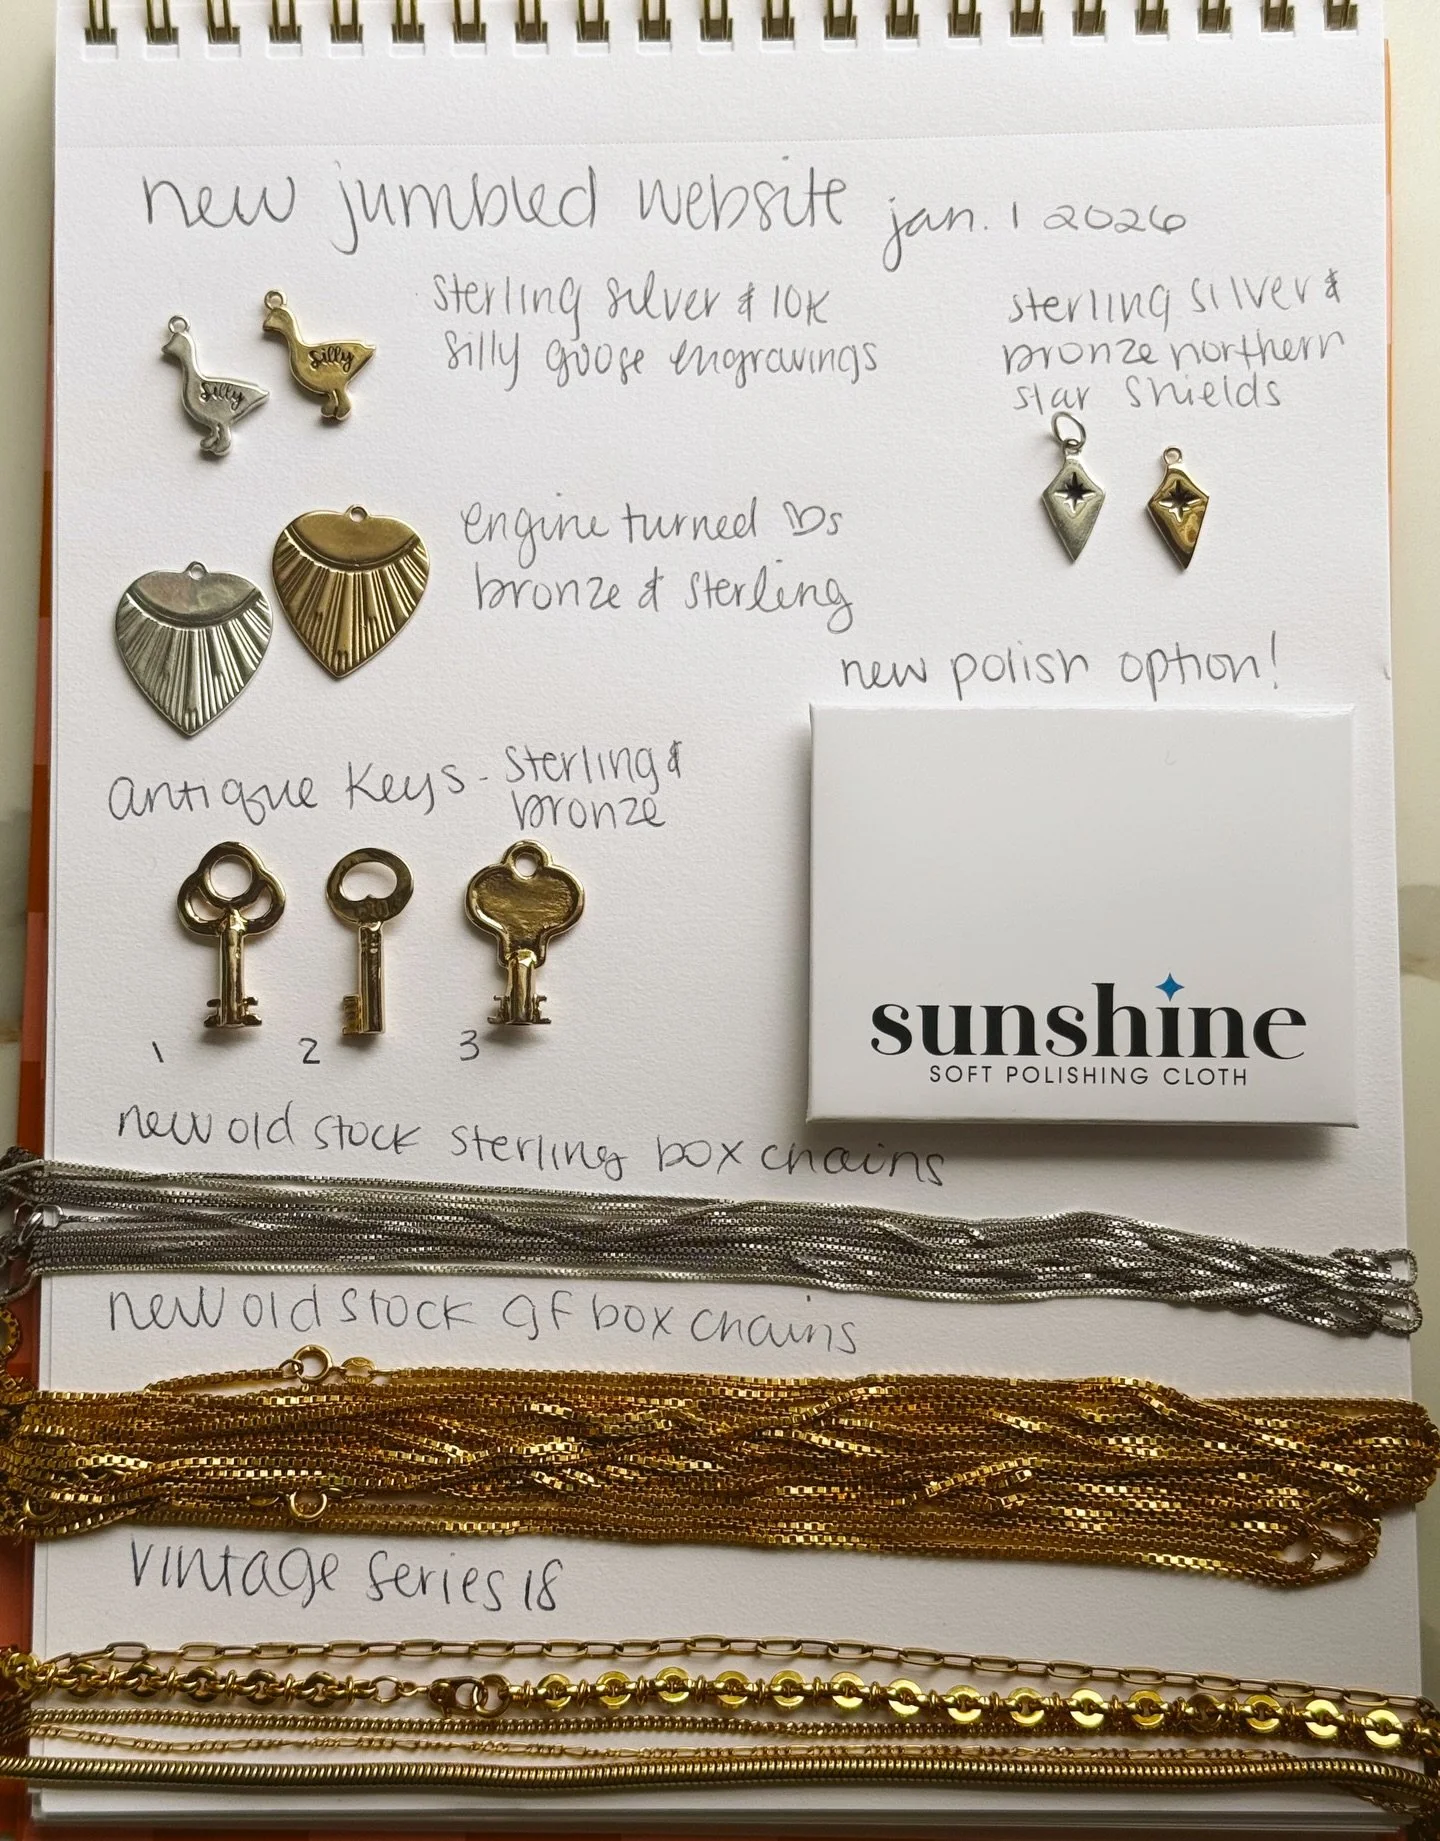 new jumbled website jan. 1 2026
sterling silver & 10K
silly goose engravings
sterling silver &
bronze northern
star shields
silly
silly
engine turned ♡s
bronze & sterling
new polish option!
antique keys - sterling &
bronze
1 2 3
sunshine
SOFT POLISHING CLOTH
new old stock sterling box chains
new old stock gf box chains
vintage series 18